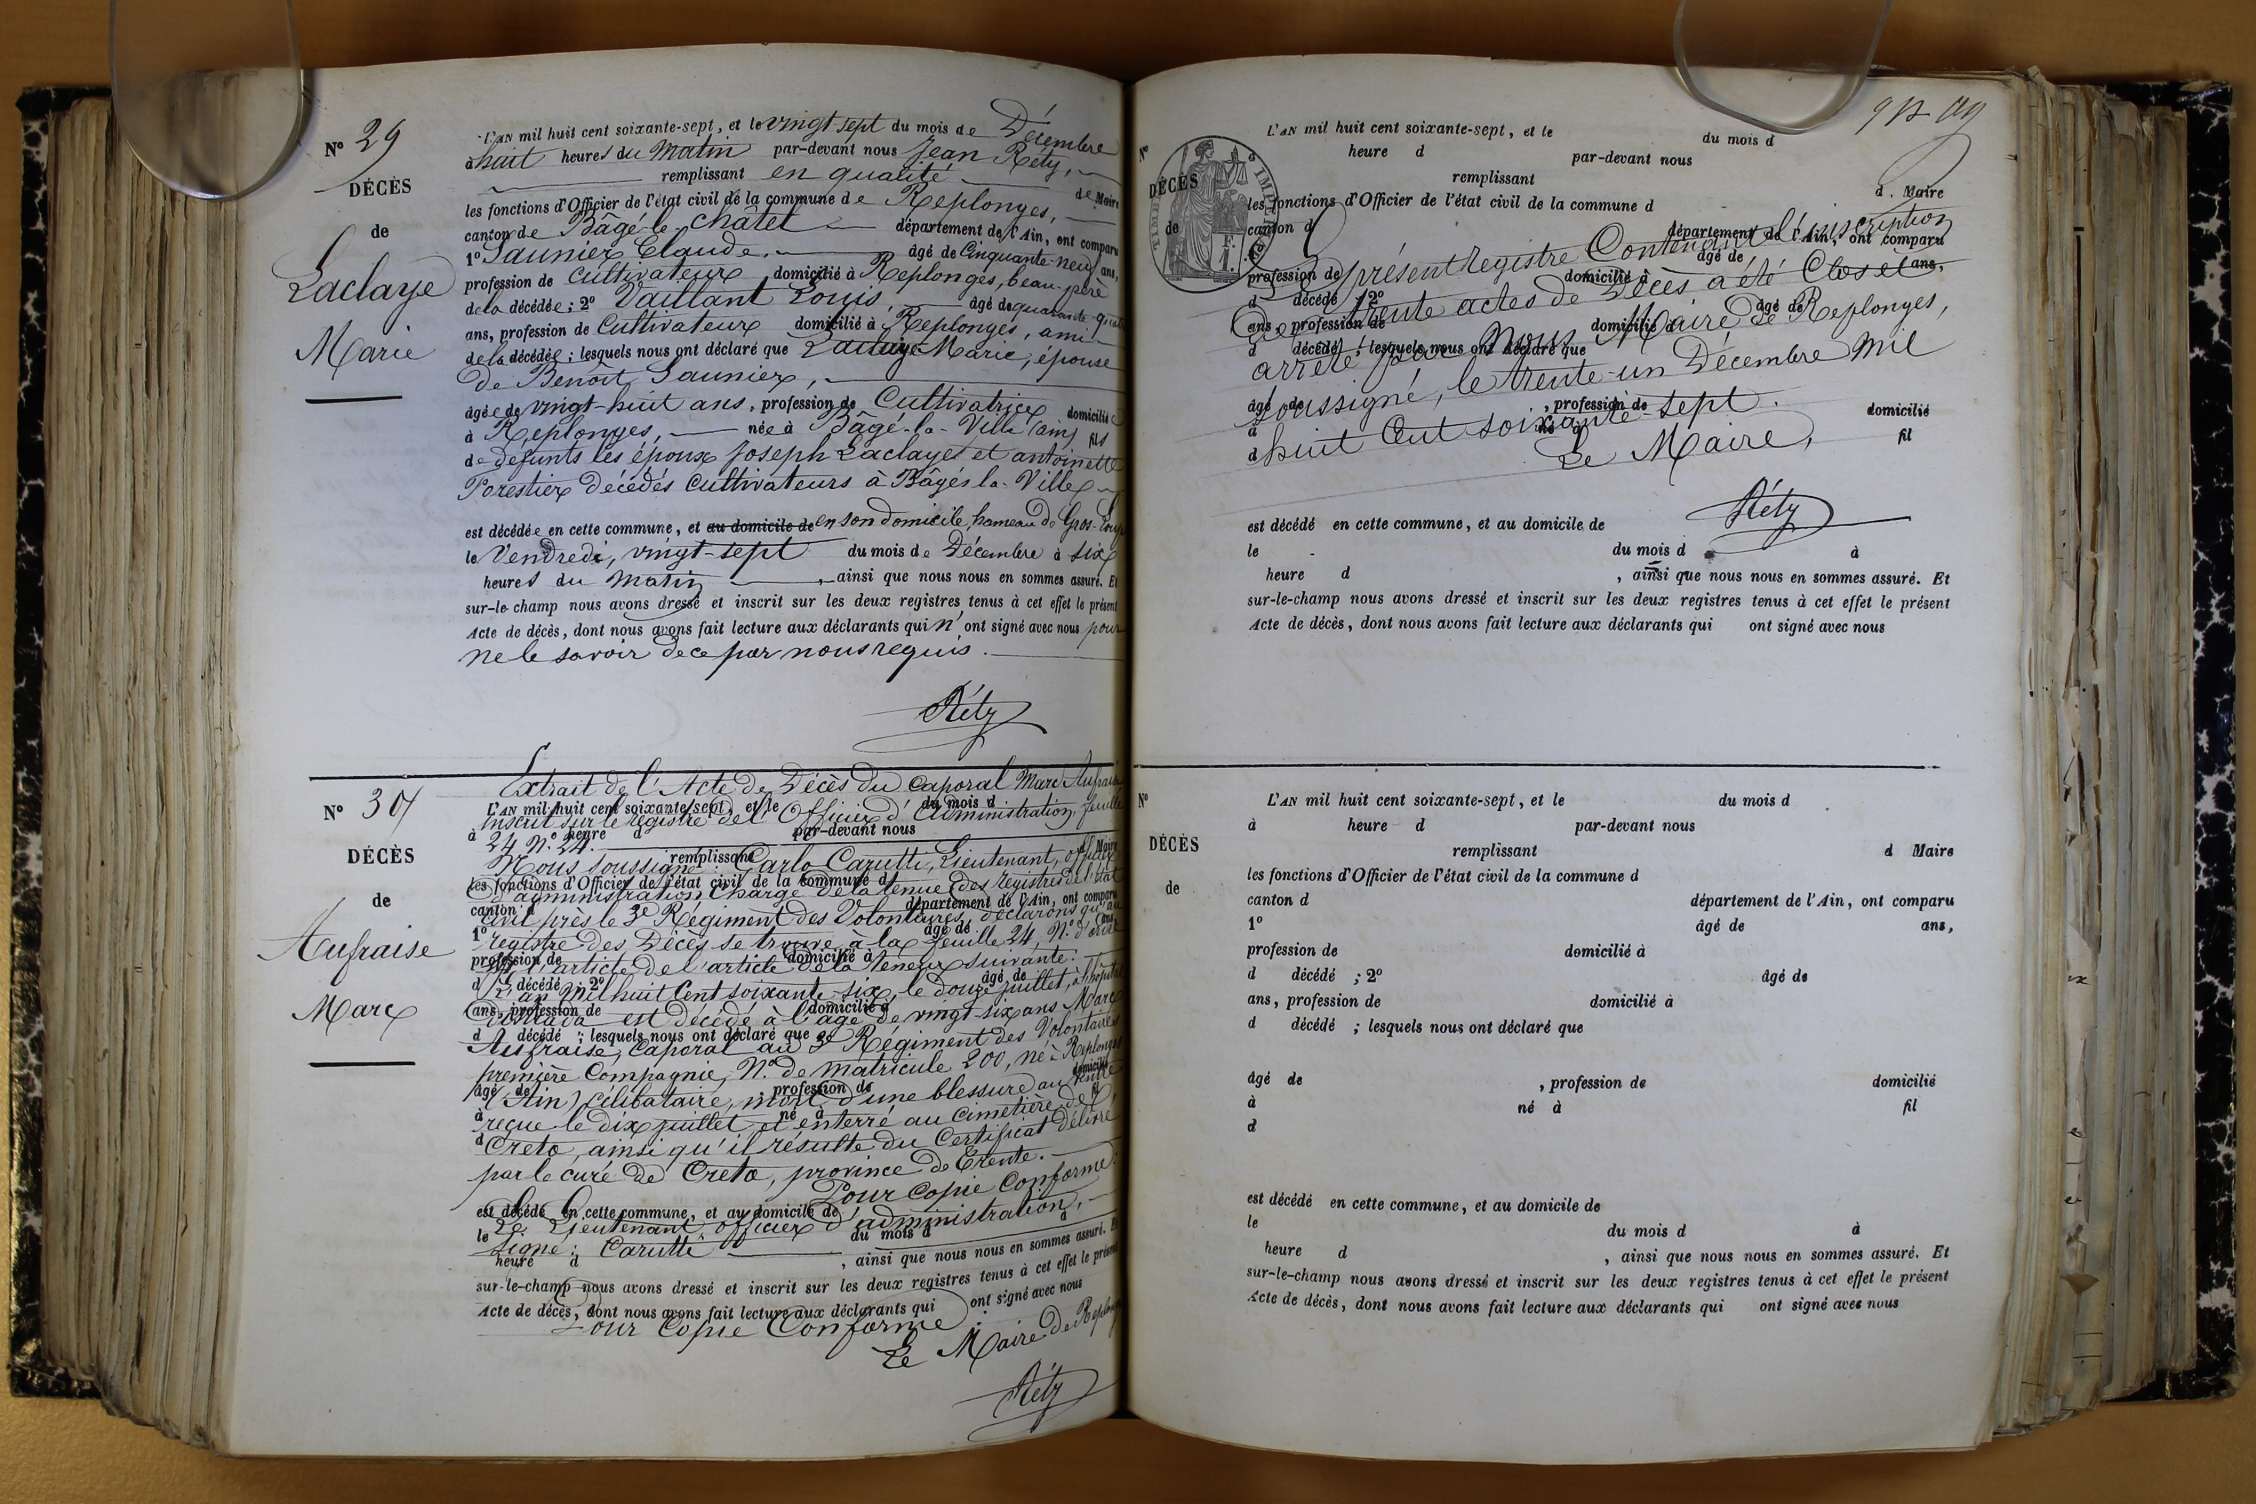 N° 29
DÉCÈS
de
Laclaye
Marie
L'AN mil huit cent soixante-sept, et le vingt-sept du mois de Décembre
à huit heures du Matin par-devant nous Jean Réty,
remplissant en qualité de Maire
les fonctions d'Officier de l'état civil de la commune de Replonges,
canton de Bâgé-le-châtel département de l'Ain, ont comparu
1° Saunier Claude. âgé de Cinquante-neuf ans,
profession de Cultivateur domicilié à Replonges, beau-père
de la décédée ; 2° Vaillant Louis, âgé de quarante-quatre
ans, profession de Cultivateur domicilié à Replonges, ami
de la décédée ; lesquels nous ont déclaré que Laclaye Marie, épouse
de Benoît Saunier,
âgée de vingt-huit ans, profession de Cultivatrice domiciliée
à Replonges, née à Bâgé-la-Ville (ain) fils
de défunts les époux Joseph Laclaye et antoinette
Forestier décédés Cultivateurs à Bâgé-la-Ville
est décédée en cette commune, et au domicile de en son domicile, hameau de Gros-
le Vendredi, vingt-sept du mois de Décembre à six
heures du Matin, ainsi que nous nous en sommes assuré. Et
sur-le-champ nous avons dressé et inscrit sur les deux registres tenus à cet effet le présent
Acte de décès, dont nous avons fait lecture aux déclarants qui n'ont signé avec nous pour
ne le savoir de ce par nous requis.
Réty
N° 30
DÉCÈS
de
Aufraise
Marc
Extrait de l'Acte de Décès du Caporal Marc Aufraise
L'AN mil huit cent soixante-sept, et le du mois d
inscrit sur le registre de l'Officier d'administration, feuille
à heure d par-devant nous
24 N° 24.
remplissant d Maire
Nous soussigné Carlo Carutti, Lieutenant, officier
les fonctions d'Officier de l'état civil de la commune d
d'administration, Chargé de la tenue des registres de l'état
canton d département de l'Ain, ont comparu
civil près le 3e Régiment des Volontaires, déclarons qu'au
1° âgé de ans,
registre des Décès se trouve à la feuille 24, N° d'ordre
profession de domicilié à
l'article de l'article de la teneur suivante.
d décédé ; 2° âgé de
L'an mil huit Cent soixante-six, le douze juillet, à l'hôpital
ans, profession de domicilié à
est décédé à l'âge de vingt-six ans Marc
d décédé ; lesquels nous ont déclaré que
Aufraise, Caporal au 3e Régiment des Volontaires
première Compagnie, N° de matricule 200, né à Replonges
âgé de , profession de domicilié
(Ain) Célibataire, mort d'une blessure au
à né à fil
reçue le dix juillet et enterré au cimetière de
d
Creto, ainsi qu'il résulte du Certificat délivré
par le curé de Creto, province de Trente.
Pour Copie Conforme :
est décédé en cette commune, et au domicile de
Le Lieutenant, officier d'administration,
le du mois d à
Signé : Carutti
heure d , ainsi que nous nous en sommes assuré. Et
sur-le-champ nous avons dressé et inscrit sur les deux registres tenus à cet effet le présent
Acte de décès, dont nous avons fait lecture aux déclarants qui ont signé avec nous
Pour Copie Conforme :
Le Maire de Replonges
Réty
N°
DÉCÈS
de
L'AN mil huit cent soixante-sept, et le du mois d
heure d par-devant nous
remplissant d Maire
les fonctions d'Officier de l'état civil de la commune d
canton d département de l'Ain, ont comparu
Le présent Registre Contenant l'inscription
âgé de ans,
profession de domicilié à
de trente actes de Décès a été Clos et
d décédé ; 2° âgé de
ans, profession de domicilié à
arrêté par Nous Maire de Replonges,
d décédé ; lesquels nous ont déclaré que
soussigné, le trente-un Décembre mil
âgé de , profession de domicilié
à né à fil
d
huit Cent soixante-sept.
Le Maire,
Réty
est décédé en cette commune, et au domicile de
le du mois d à
heure d , ainsi que nous nous en sommes assuré. Et
sur-le-champ nous avons dressé et inscrit sur les deux registres tenus à cet effet le présent
Acte de décès, dont nous avons fait lecture aux déclarants qui ont signé avec nous
N°
DÉCÈS
de
L'AN mil huit cent soixante-sept, et le du mois d
à heure d par-devant nous
remplissant d Maire
les fonctions d'Officier de l'état civil de la commune d
canton d département de l'Ain, ont comparu
1° âgé de ans,
profession de domicilié à
d décédé ; 2° âgé de
ans, profession de domicilié à
d décédé ; lesquels nous ont déclaré que
âgé de , profession de domicilié
à né à fil
d
est décédé en cette commune, et au domicile de
le du mois d à
heure d , ainsi que nous nous en sommes assuré. Et
sur-le-champ nous avons dressé et inscrit sur les deux registres tenus à cet effet le présent
Acte de décès, dont nous avons fait lecture aux déclarants qui ont signé avec nous